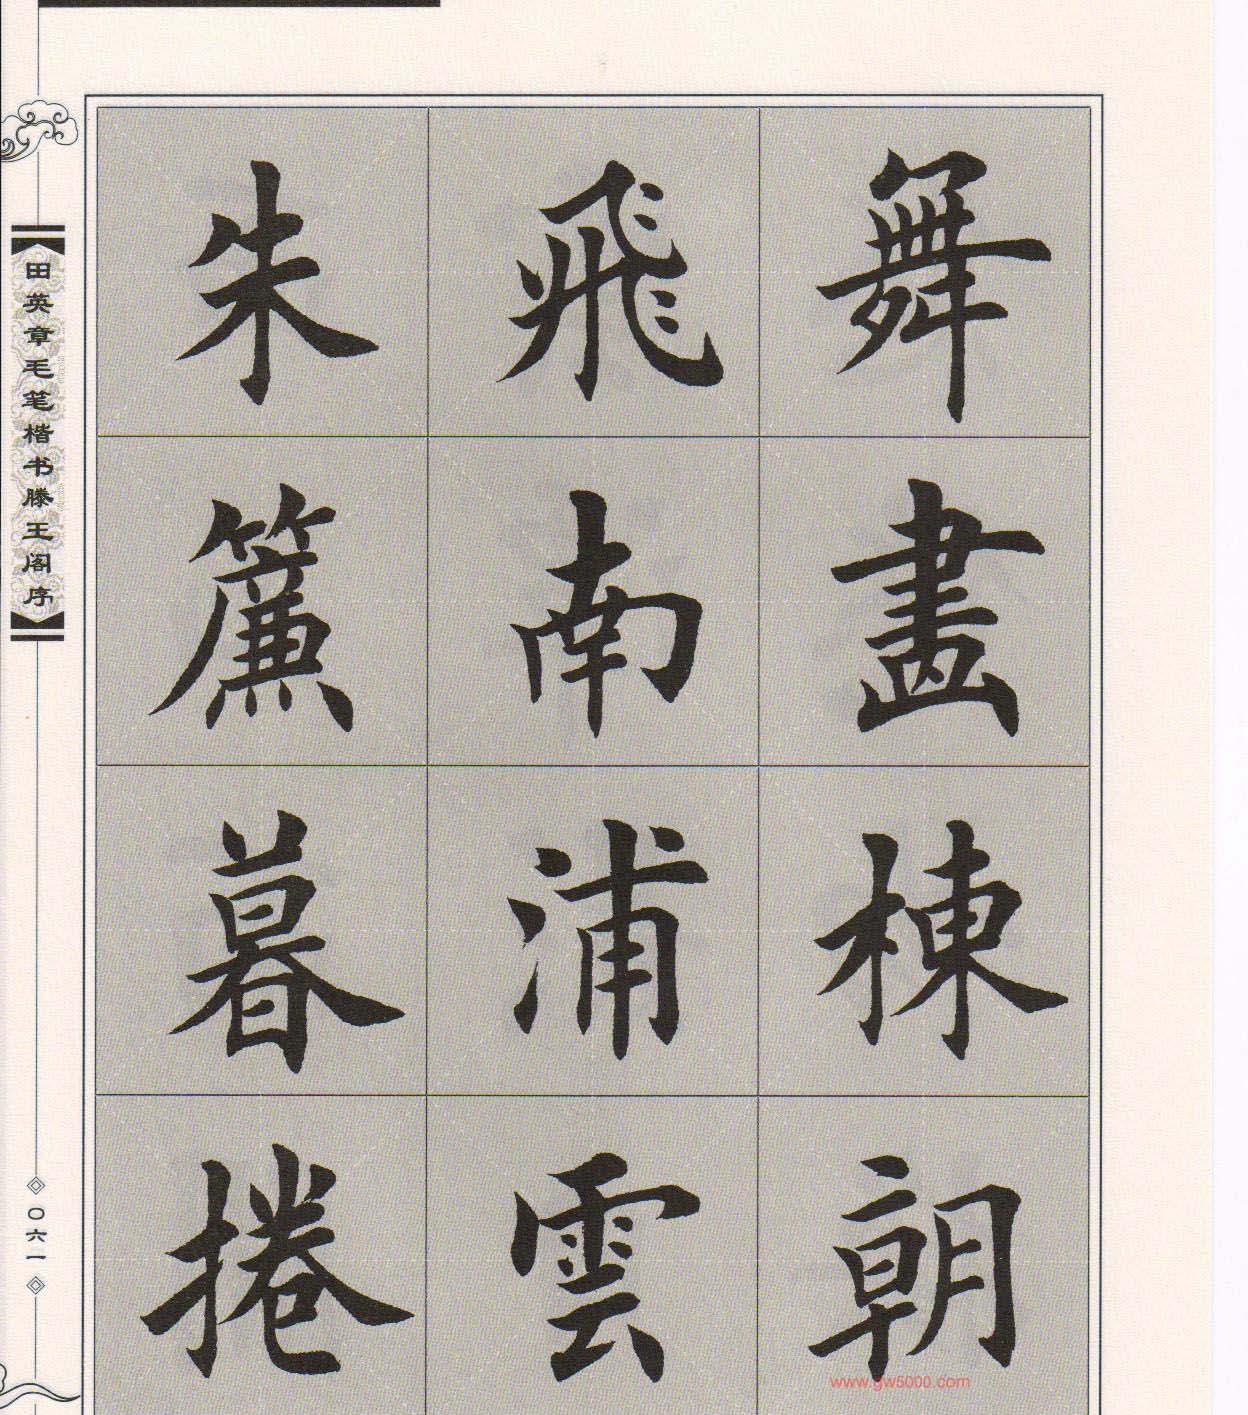 舞畫棟朝
飛南浦雲
朱簾暮捲
田英章毛笔楷书滕王阁序
〇六一
www.gw5000.com